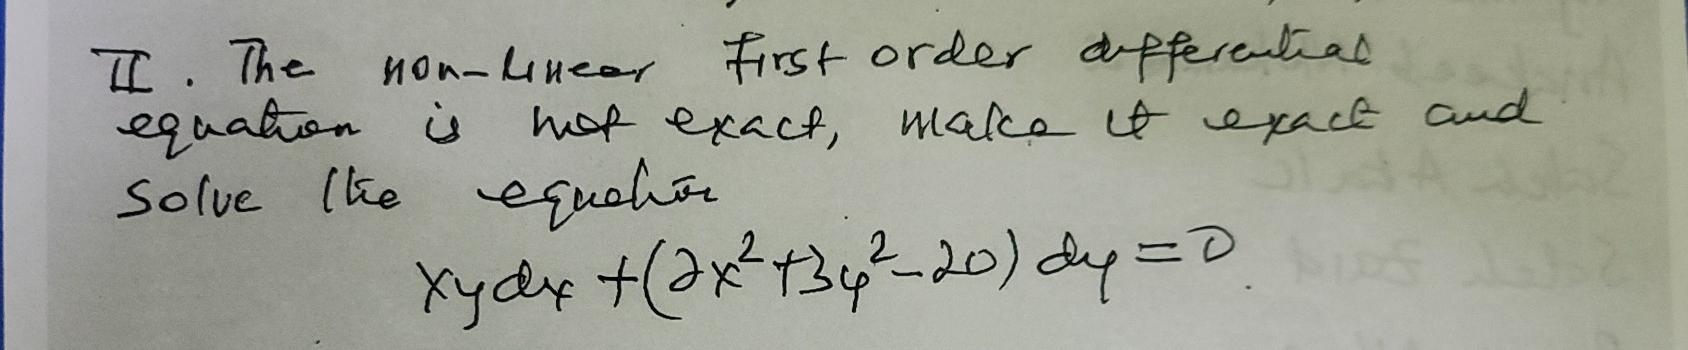 II. The non-linear first order differential
equation is not exact, make it exact and
solve the equation
xydx + (2x²+3y²-20) dy = 0.